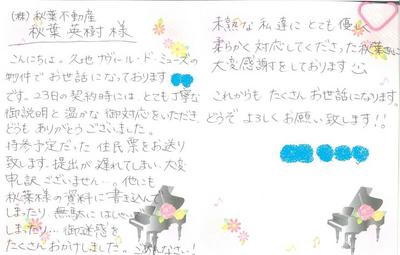 (株)秋葉不動産
秋葉 英樹 様
こんにちは。
物件でお世話になっております
です。23日の契約時には とても丁寧な
御説明と温かな御対応をいただき
どうも ありがとうございました。
持参予定だった 住民票をお送り
致します。提出が遅れてしまい、大変
申訳ございません…。他にも
秋葉様の資料に書き込んで
しまったり、無駄にはしゃいで
しまったり…御迷惑を
たくさんおかけしました。ごめんなさい!
未熟な私達に とても優しく
柔らかく対応してくださった秋葉さんに
大変感謝をしております
これからも たくさん お世話になります。
どうぞ よろしく お願い致します!!